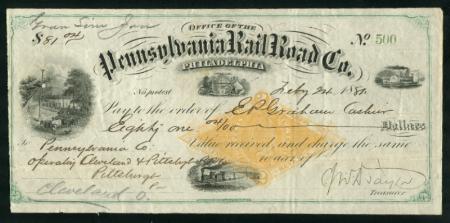 OFFICE OF THE
$81 04
Pennsylvania Rail Road Co.
No 500
PHILADELPHIA
No protest
Feby 24 1881
Pay to the order of E P Graham Cashier
Eighty one 04/100 Dollars
Value received, and charge the same
To Pennsylvania Co.
operating Cleveland & Pittsburgh
to acc. of
Pittsburgh
Treasurer
Cleveland O.